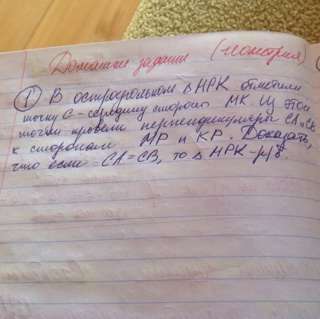 Домашнее задание (геометрия)
① В остроугольном △ МРК отметили
точку С - середину стороны МК. Из этой
точки провели перпендикуляры СА и СВ
к сторонам МР и КР. Доказать,
что если СА = СВ, то △ МРК - р/б.